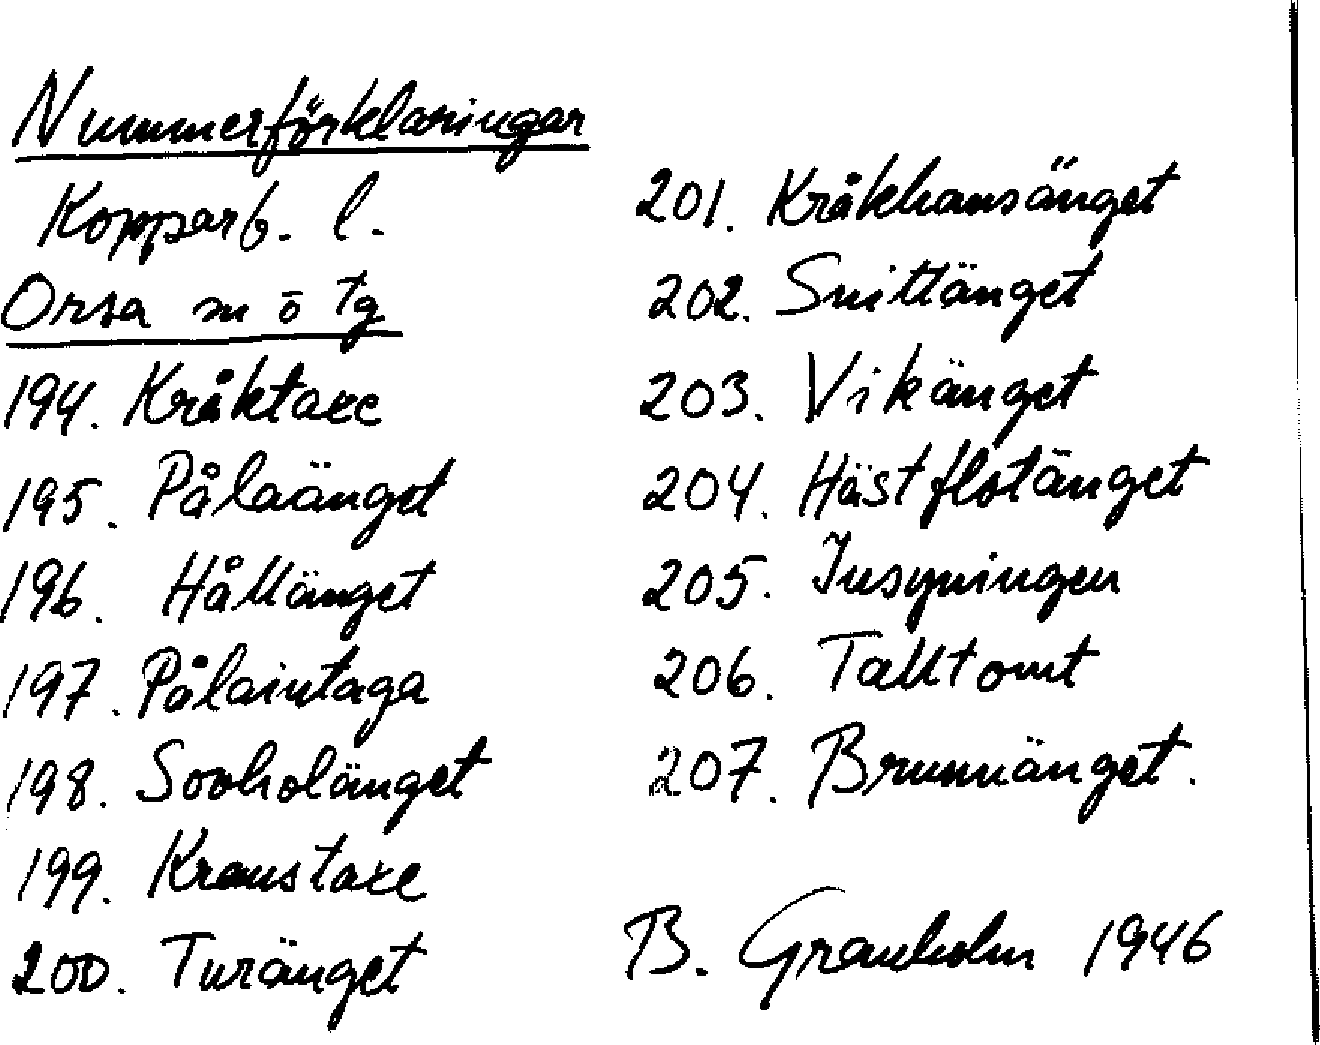 Nummerförklaringar
Kopparb. l.
Orsa sn ö tg
194. Kråktaxe
195. Pålaänget
196. Hållänget
197. Pålaintaga
198. Sovholänget
199. Kranstaxe
200. Turänget
201. Kråkhansänget
202. Snittänget
203. Vikänget
204. Hästflotänget
205. Insyningen
206. Talltomt
207. Brunnänget.
B. Granholm 1946